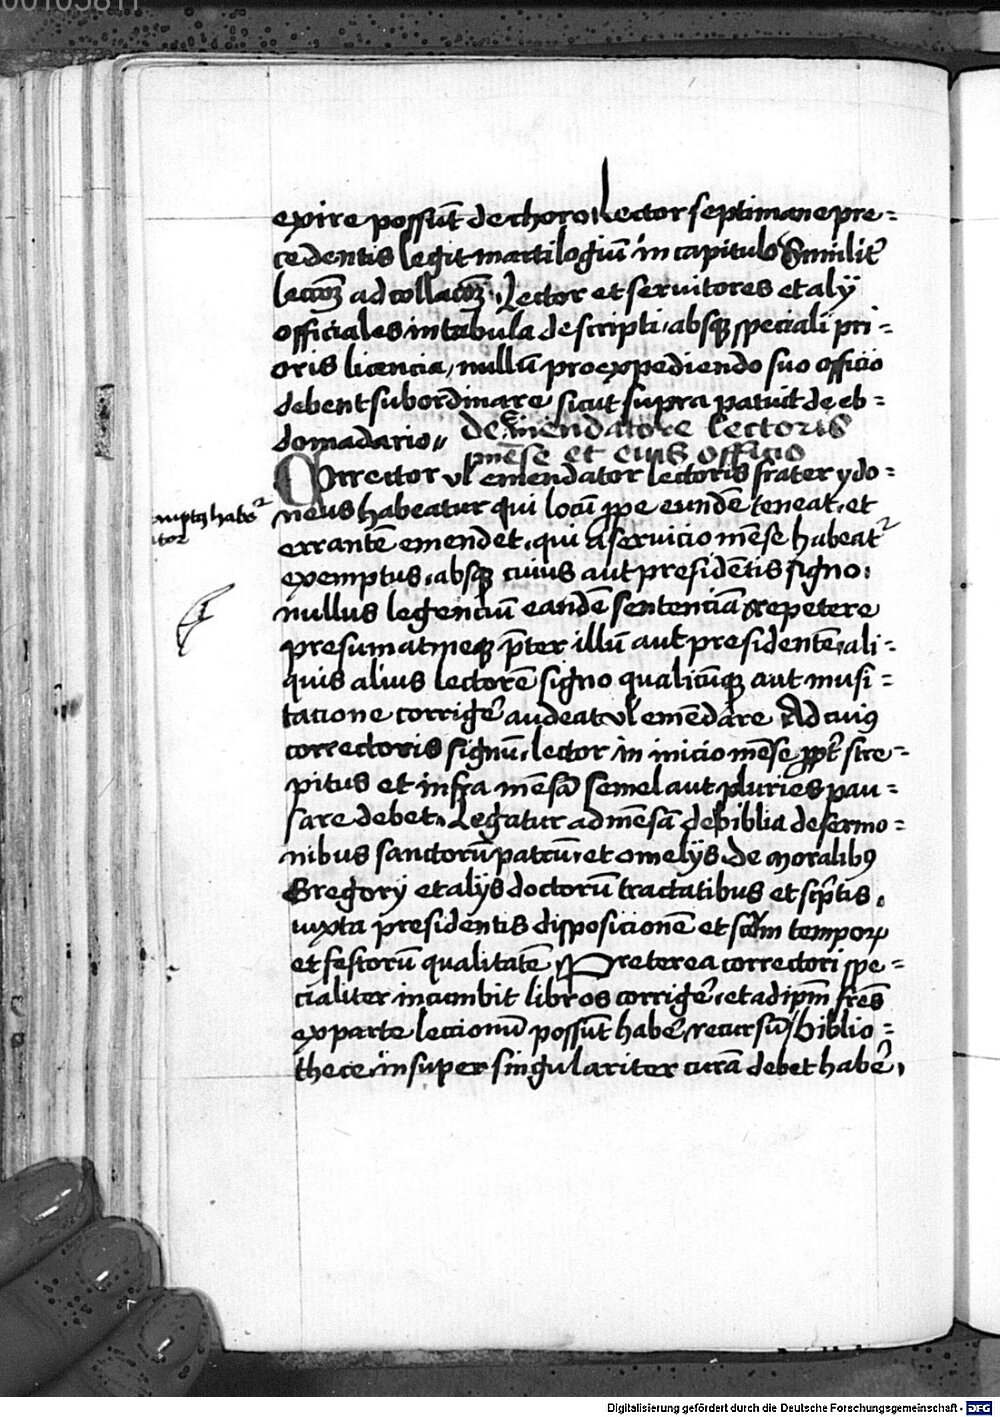 00105811
exire possūt de choro Lector septimane pre=
cedentis legit martilogiū in capitulo Similit᷑
leccōꝫ ad collacōꝫ. Lector et seruitores et alij
officiales in tabula descripti, absqꝫ speciali pri=
oris licencia, nullū pro expediendo suo officio
debent subordinare sicut supra patuit de eb=
domadario. de emendatore lectoris
mēse et eius officio
Corrector vl̛ emendator lectoris frater ydo=
neus habeatur qui locū ꝓpe eundē teneat, et
errantē emendet, qui a seruicio mēse habeat᷑
exemptus, absqꝫ cuius aut presidētis signo.
nullus legenciū eandē sentenciā repetere
presumat neqꝫ p̄ter illū aut presidentē, ali=
quis alius lectorē signo qualicūqꝫ aut musi=
tacione corrige᷑ audeat vl̛ emēdare Ad cuiꝰ
correctoris signū, lector in inicio mēse ꝓpt᷑ stre=
pitus et infra mēsā semel aut pluries pau=
sare debet. Legatur ad mēsā de biblia de sermo=
nibus sanctorū patrū, et omelijs de moralibꝰ
Gregorij et alijs doctorū tractatibus et sc̄ptis.
iuxta presidentis disposicionē et scdm̄ temporꝝ
et festorū qualitatē Preterea correctori spe=
cialiter incumbit libros corrige᷑, et ad ip̄m fr̄es
ex parte leccionū possūt habe᷑ recursū, biblio=
thece insuper singulariter curā debet habe᷑.
habet᷑
Digitalisierung gefördert durch die Deutsche Forschungsgemeinschaft - DFG